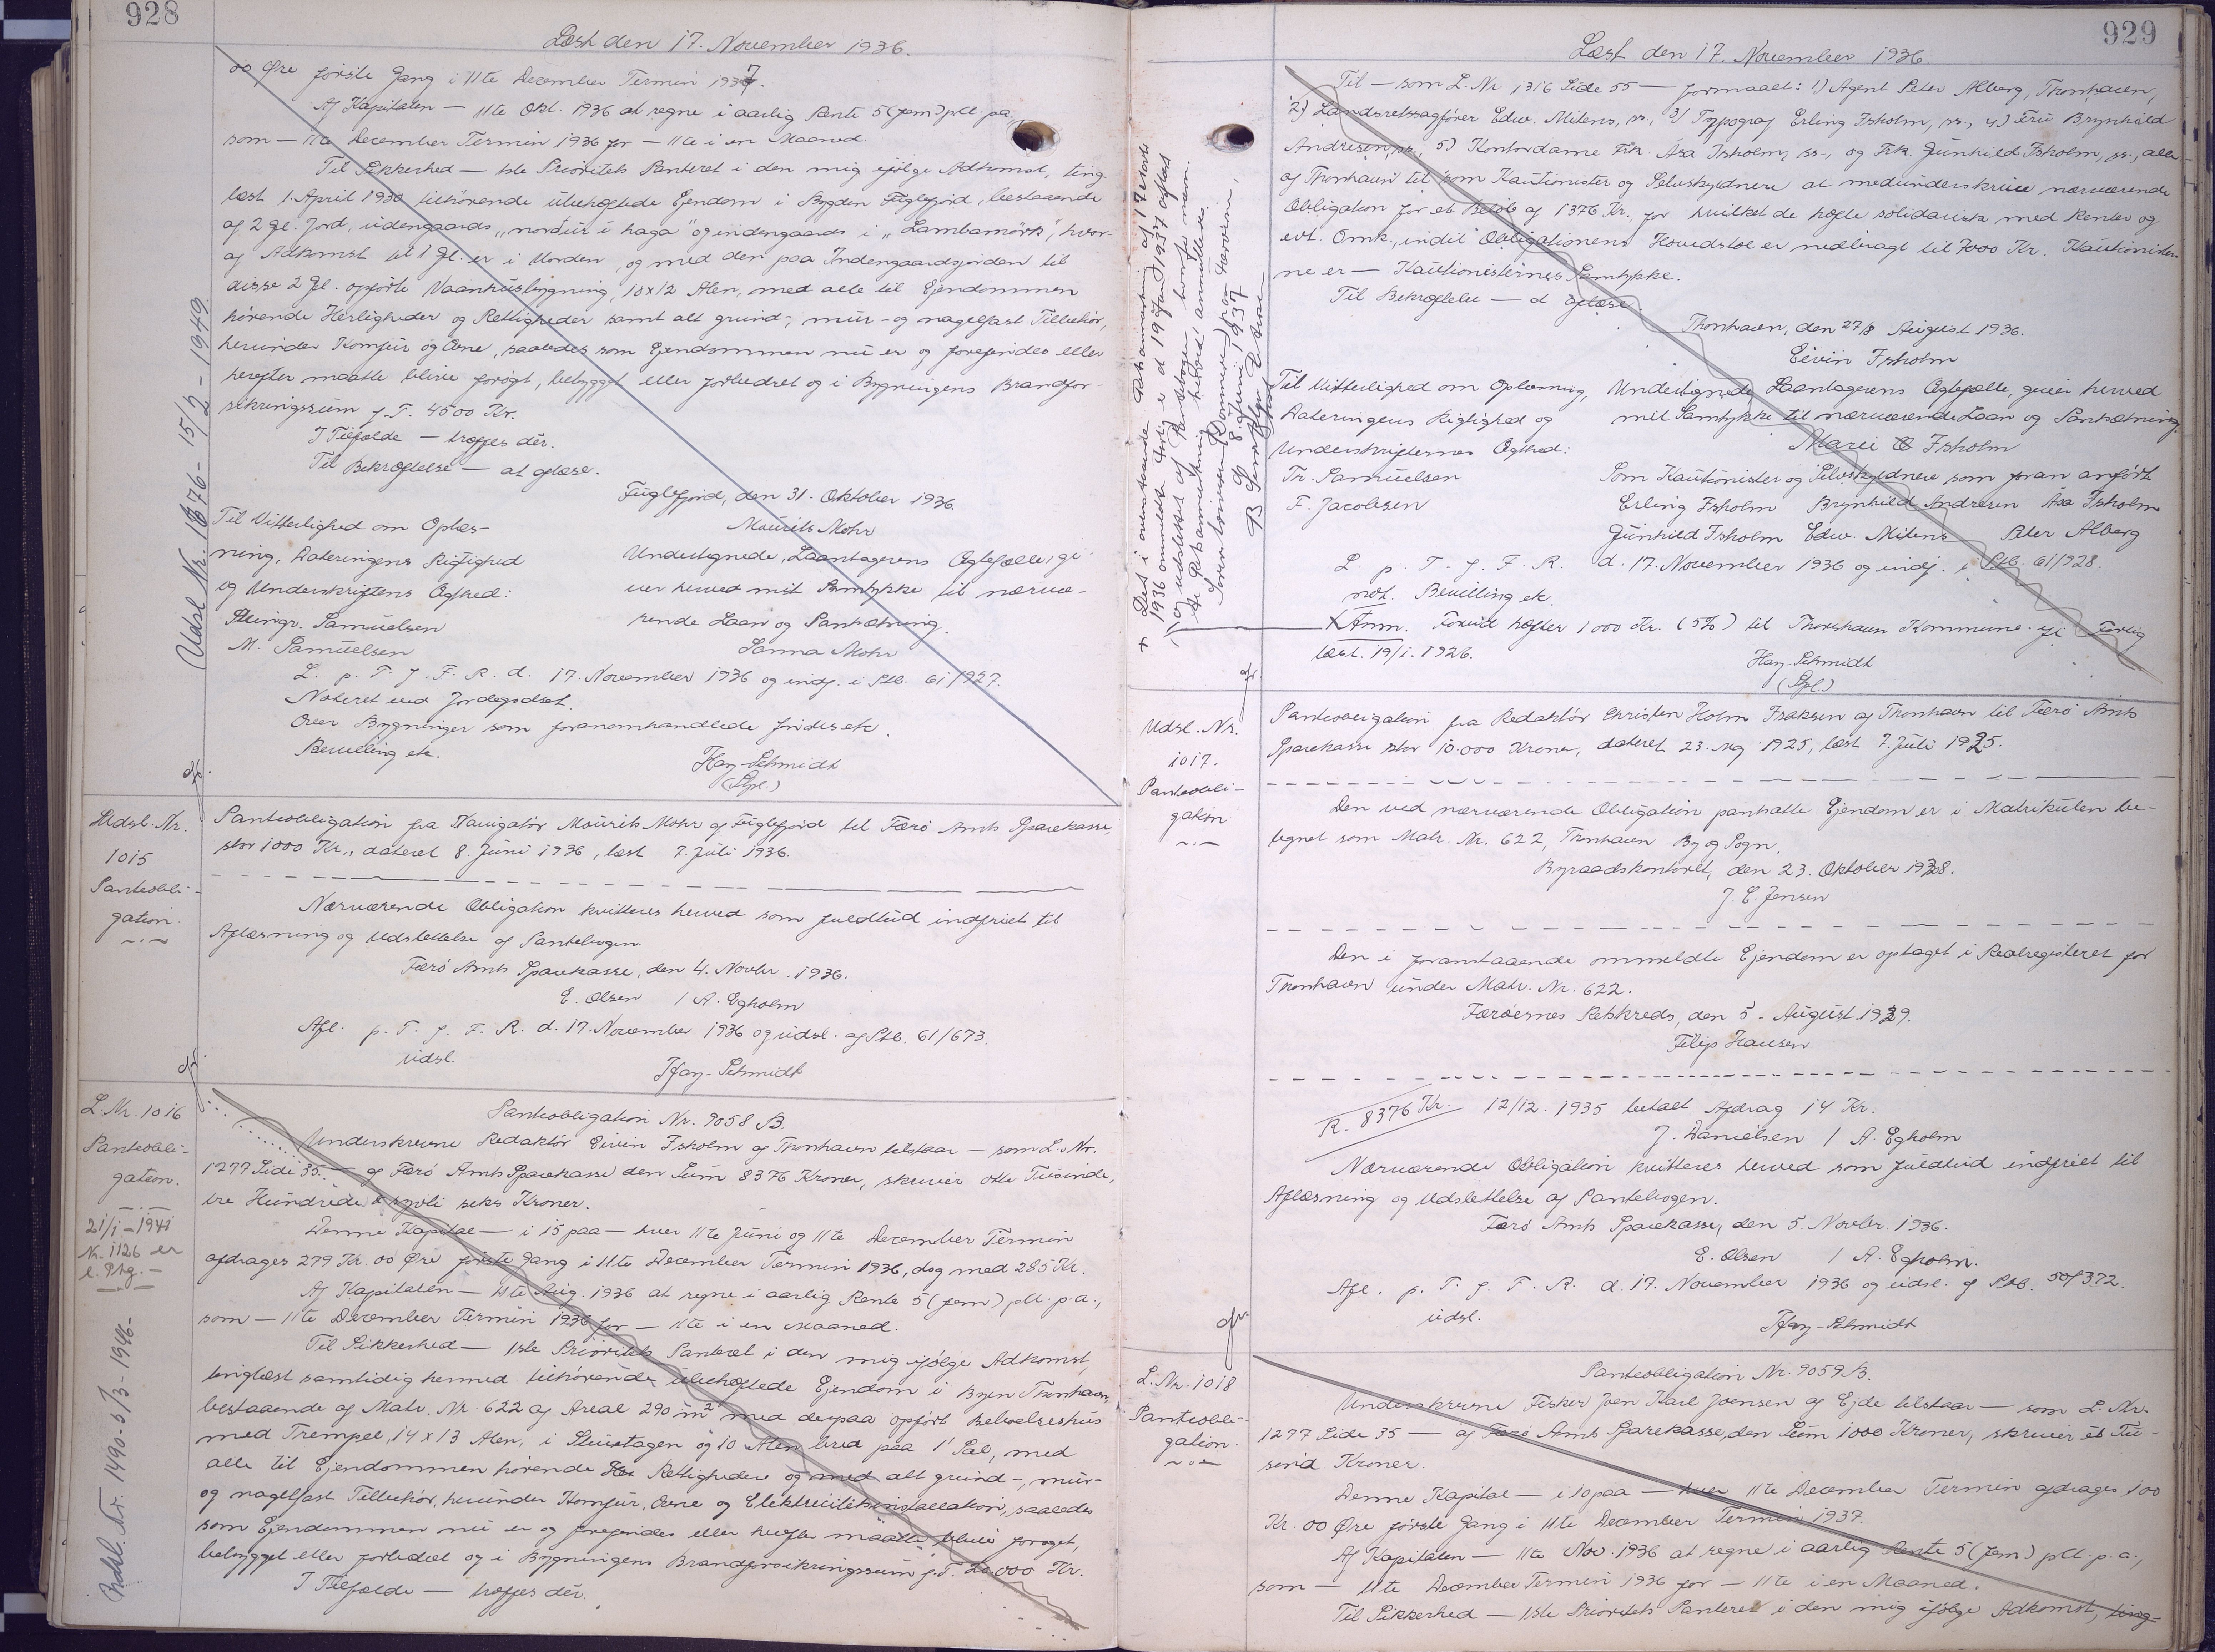 928
Læst den 17. November 1936.
00 Øre første Gang i 11te December Termin 1937.
Af Kapitalen — 11te Okt. 1936 at regne i aarlig Rente 5 (fem) pCt. p.a.,
som — 11te December Termin 1936 for — 11te i en Maaned.
Til Sikkerhed — 1ste Prioritets Panteret i den mig ifølge Adkomst, ting-
læst 1. April 1930 tilhørende ubehæftede Ejendom i Bygden Fuglefjord, bestaaende
af 2 Gl. Jord, udengaards „nordur i haga" og indengaards i „Lambamørk", hvor-
af Adkomst til 1 Gl. er i Orden, og med den paa Indengaardsjorden til
disse 2 Gl. opførte Vaanhusbygning, 10 x 12 Alen, med alle til Ejendommen
hørende Herligheder og Rettigheder samt alt grund-, mur- og nagelfast Tilbehør,
herunder Komfur og Ovne, saaledes som Ejendommen nu er og forefindes eller
herefter maatte blive forøgt, bebygget eller forbedret og i Bygningens Brandfor-
sikringssum p.T. 4500 Kr.
I Tilfælde — træffes dér.
Til Bekræftelse — at aflæse.
Fuglefjord, den 31. Oktober 1936.
Til Vitterlighed om Oplæs-
ning, Dateringens Rigtighed
og Underskriftens Ægthed:
Steingr. Samuelsen
M. Samuelsen
Maurits Mohr
Undertegnede, Laantagerens Ægtefælle, gi-
ver herved mit Samtykke til nærvæ-
rende Laan og Pantsætning.
Sanna Mohr
L. p. T. f. F. R. d. 17. November 1936 og indf. i Ptb. 61/927.
Noteret ved Jordegodset.
Over Bygninger som foranomhandlede findes etc.
Bevilling etc.
Hay-Schmidt
(Spl.)
Udsl. Nr. 1876 - 15/2 - 1949.
Udsl. Nr.
1015
Panteobli-
gation.
Panteobligation fra Navigatør Maurits Mohr af Fuglefjord til Færø Amts Sparekasse,
stor 1000 Kr., dateret 8. Juni 1936, læst 7. Juli 1936.
Nærværende Obligation kvitteres herved som fuldtud indfriet til
Aflæsning og Udslettelse af Pantebogen.
Færø Amts Sparekasse, den 4. Novbr. 1936.
E. Olsen / A. Egholm
Afl. p. T. f. F. R. d. 17. November 1936 og udsl. af Ptb. 61/673.
udsl.
Hay-Schmidt
L. Nr. 1016
Panteobli-
gation.
21/1 - 1941
N. 1126 er
Udsl. Nr. 1490 - 5/3 - 1946-
Panteobligation Nr. 9058 B.
Underskrevne Redaktør Eivin Isholm af Thorshavn tilstaar — som L. Nr.
1277 Side 35 — af Færø Amts Sparekasse den Sum 8376 Kroner, skriver otte Tusinde,
tre Hundrede og syvti seks Kroner.
Denne Kapital — i 15 paa — hver 11te Juni og 11te December Termin
afdrages 279 Kr. 00 Øre første Gang i 11te December Termin 1936, dog med 285 Kr.
Af Kapitalen — 11te Aug. 1936 at regne i aarlig Rente 5 (fem) pCt. p.a.,
som — 11te December Termin 1936 for — 11te i en Maaned.
Til Sikkerhed — 1ste Prioritets Panteret i den mig ifølge Adkomst,
tinglæst samtidig hermed tilhørende ubehæftede Ejendom i Byen Thorshavn,
bestaaende af Matr. Nr. 622 af Areal 290 m² med derpaa opført Beboelseshus
med Trempel, 14 x 13 Alen, i Stueetagen og 10 Alen bred paa 1' Sal, med
alle til Ejendommen hørende Rettigheder og med alt grund-, mur-
og nagelfast Tilbehør, herunder Komfur, Ovne og Elektricitetsinstallation, saaledes
som Ejendommen nu er og forefindes eller herefter maatte blive forøget,
bebygget eller forbedret og i Bygningens Brandforsikringssum p.T. 20.000 Kr.
I Tilfælde — træffes dér.
929
Læst den 17. November 1936.
Til — som L. Nr. 1316 Side 55 — formaaet: 1) Agent Peter Alberg, Thorshavn,
2) Landsretssagfører Edw. Mitens, ss., 3) Typograf Erling Isholm, ss., 4) Fru Brynhild
Andresen, ss., 5) Kontordame Frk. Asa Isholm, ss., og Frk. Gunhild Isholm, ss., alle
af Thorshavn til som Kautionister og Selvskyldnere at medunderskrive nærværende
Obligation for et Beløb af 1376 Kr., for hvilket de hæfte solidarisk med Renter og
evt. Omk., indtil Obligationens Hovedstol er nedbragt til 7000 Kr. Kautionister-
ne er — Kautionisternes Samtykke.
Til Bekræftelse — at aflæse.
Thorshavn, den 27/8 August 1936.
Eivin Isholm
Til Vitterlighed om Oplæsning,
Dateringens Rigtighed og
Underskrifternes Ægthed:
Th. Samuelsen
F. Jacobsen
Undertegnede, Laantagerens Ægtefælle, giver herved
mit Samtykke til nærværende Laan og Pantsætning.
Marie Isholm
Som Kautionister og Selvskyldnere som foran anført
Erling Isholm Brynhild Andresen Asa Isholm
Gunhild Isholm Edw. Mitens Peter Alberg
L. p. T. f. F. R. d. 17. November 1936 og indf. i Ptb. 61/928.
not. Bevilling etc.
x Anm. Forud hæfter 1000 Kr. (5%) til Thorshavn Kommune if. Forlig
læst. 19/1. 1926.
Hay-Schmidt
(Spl.)
x Det i ovenstaaende Retsanmærkning af 17 ds.
1936 ommeldte Forlig er d. 19 Januar 1937 aflæst
og udslettet af Pantebogen
8 Juni 1937
Udsl. Nr.
1017.
Panteobli-
gation
Panteobligation fra Redaktør Christen Holm Isaksen af Thorshavn til Færø Amts
Sparekasse stor 10.000 Kroner, dateret 23. Maj 1925, læst 7. Juli 1925.
Den ved nærværende Obligation pantsatte Ejendom er i Matrikulen be-
tegnet som Matr. Nr. 622, Thorshavn By og Sogn.
Byraadskontoret, den 23. Oktober 1928.
J. E. Jensen
Den i foranstaaende ommeldte Ejendom er optaget i Realregisteret for
Thorshavn under Matr. Nr. 622.
Færøernes Retskreds, den 5. August 1929.
Filip Hansen
R. 8376 Kr. 12/12. 1935 betalt Afdrag 14 Kr.
J. Danielsen / A. Egholm
Nærværende Obligation kvitteres herved som fuldtud indfriet til
Aflæsning og Udslettelse af Pantebogen.
Færø Amts Sparekasse, den 5. Novbr. 1936.
E. Olsen / A. Egholm.
Afl. p. T. f. F. R. d. 17. November 1936 og udsl. af Ptb. 50/372.
udsl.
Hay-Schmidt
L. Nr. 1018
Panteobli-
gation.
Panteobligation Nr. 9059 B.
Underskrevne Fisker Joen Karl Joensen af Ejde tilstaar — som L. Nr.
1277 Side 35 — af Færø Amts Sparekasse, den Sum 1000 Kroner, skriver et Tu-
sind Kroner.
Denne Kapital — i 10 paa — hver 11te December Termin afdrages 100
Kr. 00 Øre første Gang i 11te December Termin 1937.
Af Kapitalen — 11te Nov. 1936 at regne i aarlig Rente 5 (fem) pCt. p.a.,
som — 11te December Termin 1936 for — 11te i en Maaned.
Til Sikkerhed — 1ste Prioritets Panteret i den mig ifølge Adkomst, ting-